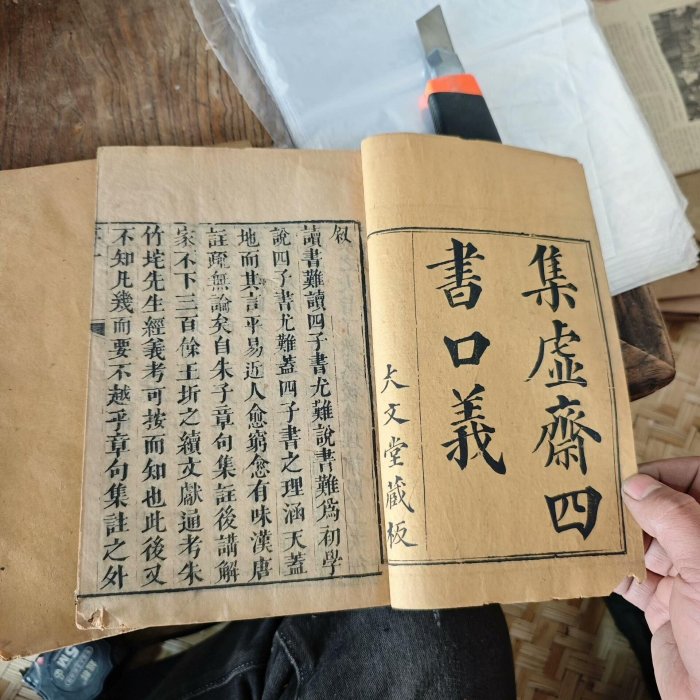 集虚齋四
書口義
大文堂藏板
叙
讀書難讀四子書尤難說書難爲初學
說四子書尤難蓋四子書之理涵天蓋
地而其言平易近人愈窮愈有味漢唐
註疏無論矣自朱子章句集註後講解
家不下三百餘王圻之續文獻通考朱
竹垞先生經義考可按而知也此後又
不知凡幾而要不越乎章句集註之外